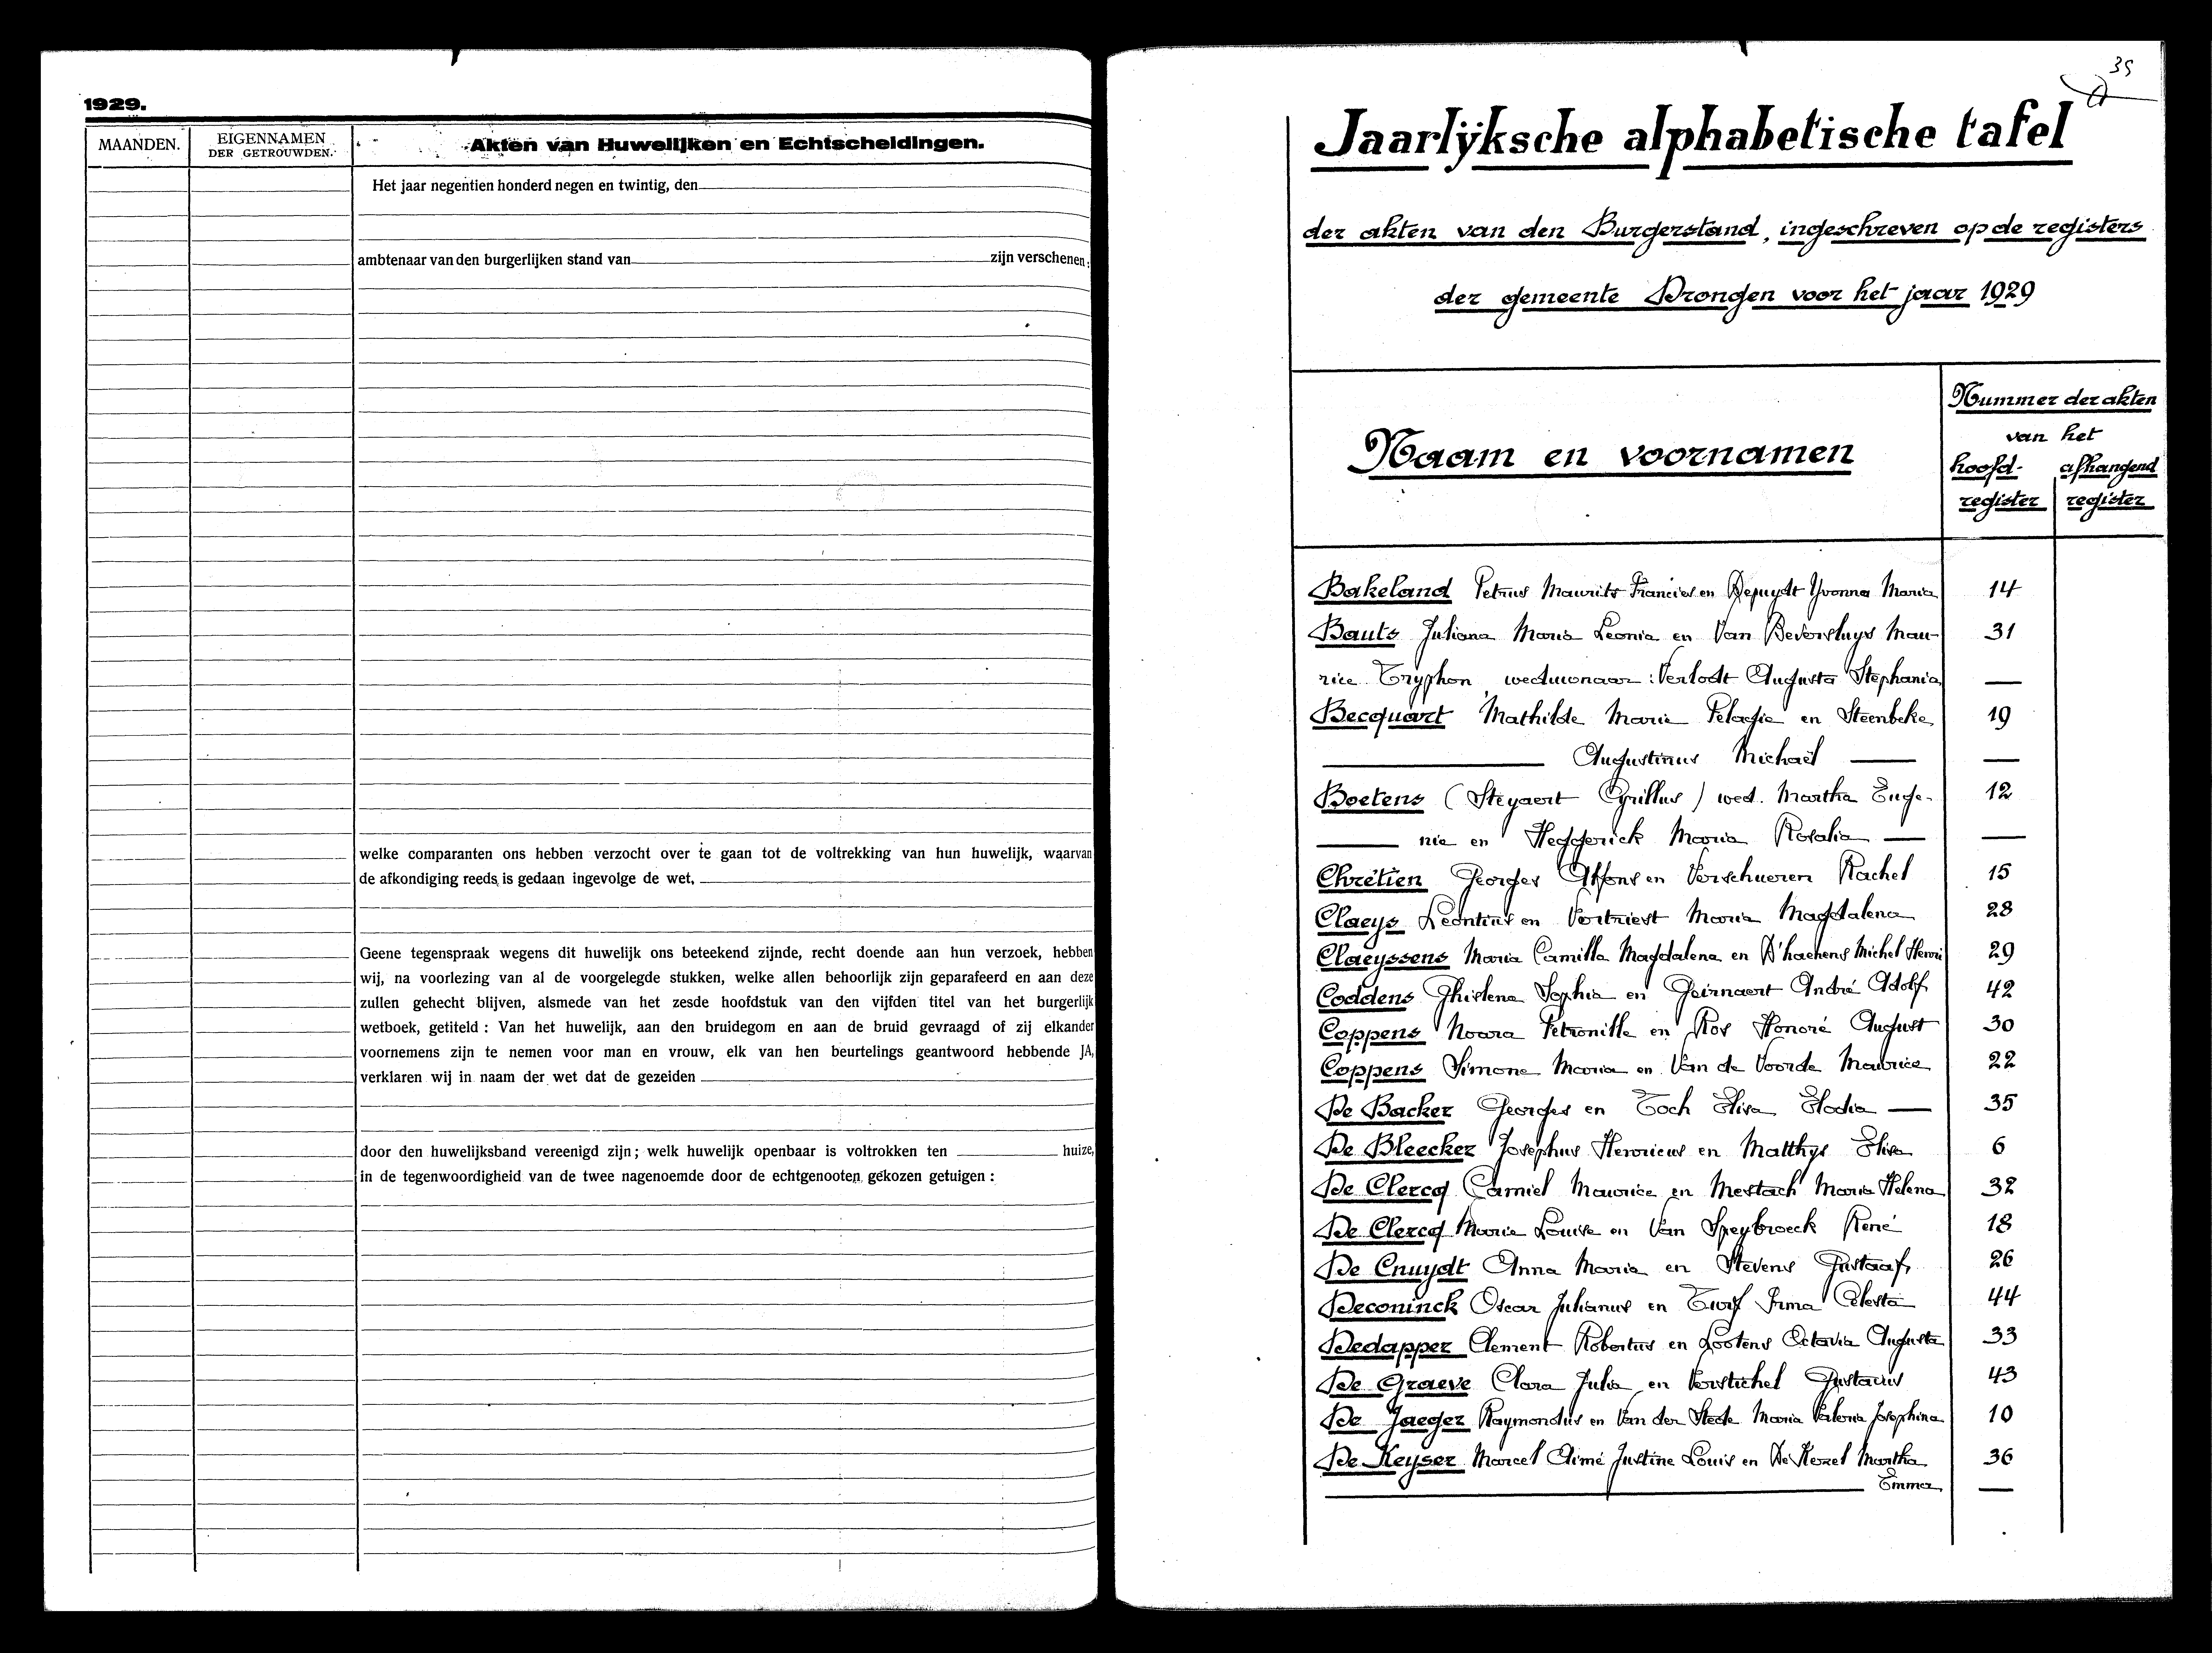 1929.
MAANDEN.
EIGENNAMEN
DER GETROUWDEN.
Akten van Huwelijken en Echtscheidingen.
Het jaar negentien honderd negen en twintig, den
ambtenaar van den burgerlijken stand van zijn verschenen:
welke comparanten ons hebben verzocht over te gaan tot de voltrekking van hun huwelijk, waarvan
de afkondiging reeds is gedaan ingevolge de wet,
Geene tegenspraak wegens dit huwelijk ons beteekend zijnde, recht doende aan hun verzoek, hebben
wij, na voorlezing van al de voorgelegde stukken, welke allen behoorlijk zijn geparafeerd en aan deze
zullen gehecht blijven, alsmede van het zesde hoofdstuk van den vijfden titel van het burgerlijk
wetboek, getiteld : Van het huwelijk, aan den bruidegom en aan de bruid gevraagd of zij elkander
voornemens zijn te nemen voor man en vrouw, elk van hen beurtelings geantwoord hebbende JA,
verklaren wij in naam der wet dat de gezeiden
door den huwelijksband vereenigd zijn; welk huwelijk openbaar is voltrokken ten huize,
in de tegenwoordigheid van de twee nagenoemde door de echtgenooten gekozen getuigen :
39
Jaarlÿksche alphabetische tafel
der akten van den Burgerstand, ingeschreven op de registers
der gemeente Drongen voor het jaar 1929
Naam en voornamen
Nummer der akten
van het
hoofd- afhangend
register register
Bakeland Petrus Maurits Francies en Depuydt Yvonna Maria 14
Bauts Juliana Maria Leonia en Van Beversluys Mau- 31
rice Tryphon, weduwnaar : Verlodt Augusta Stephania —
Becquart Mathilde Marie Pelagie en Steenbeke 19
Augustinus Michaël —
Boetens (Steyaert Cyrillus) wed. Martha Euge- 12
nie en Heggerick Maria Rosalia —
Chrétien Georges Alfons en Verschueren Rachel 15
Claeys Leontius en Vertriest Maria Magdalena 28
Claeyssens Maria Camilla Magdalena en D'haenens Michel Henri 29
Coddens Ghislena Sophia en Geirnaert André Adolf 42
Coppens Noara Petronille en Ros Honoré August 30
Coppens Simone Maria en Van de Voorde Maurice 22
De Backer Georges en Toch Elisa Elodia — 35
De Bleecker Josephus Henricus en Matthys Elisa 6
De Clercq Camiel Maurice en Mestach Maria Helena 32
De Clercq Marie Louise en Van Speybroeck René 18
De Cnuydt Anna Maria en Stevens Gustaaf 26
Deconinck Oscar Julianus en Turf Irma Celesta 44
Dedapper Clement Robertus en Lootens Octavia Augusta 33
De Graeve Clara Julia en Verstichel Gustavus 43
De Jaeger Raymondus en Van der Stede Maria Valeria Josephina 10
De Keyser Marcel Aimé Justine Louis en De Kezel Martha 36
Emma —